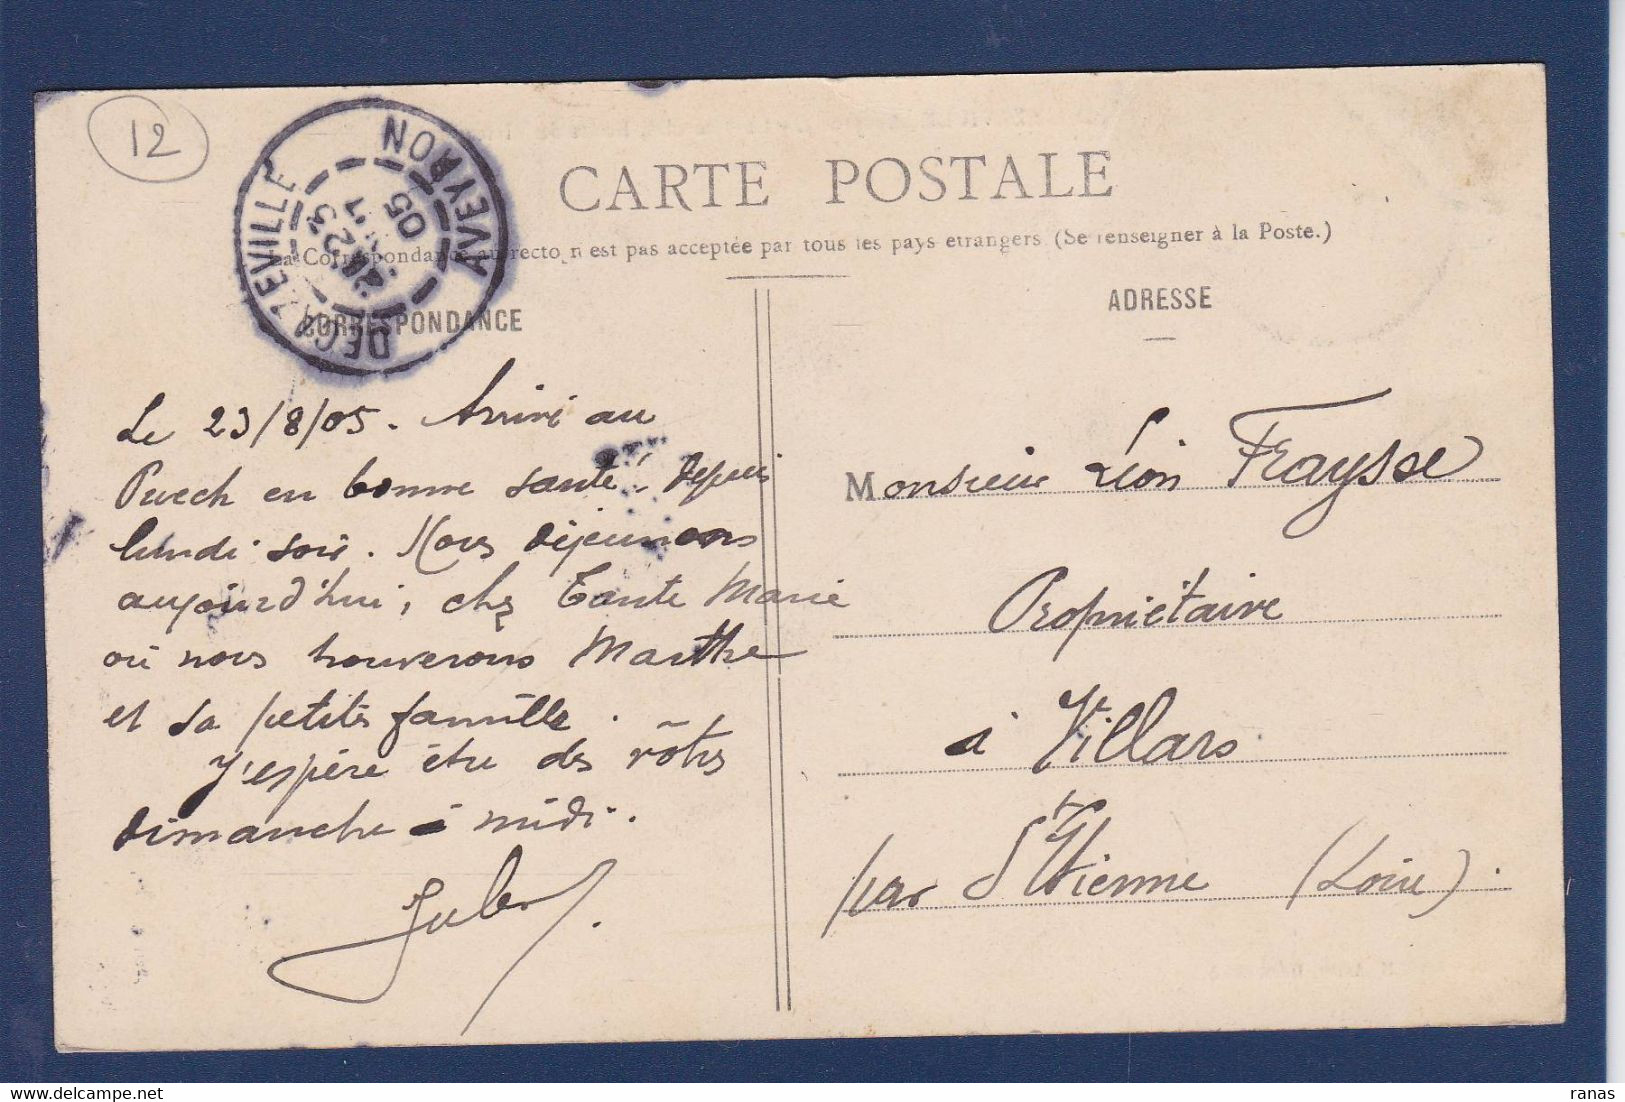 12
DECAZEVILLE
AVEYRON
23
05
CARTE POSTALE
La Correspondance au recto n'est pas acceptée par tous les pays étrangers (Se renseigner à la Poste.)
CORRESPONDANCE
Le 23/8/05. Arrivé au
Puech en bonne santé, depuis
lundi soir. Nous déjeunerons
aujourd'hui, chez Tante Marie
où nous trouverons Marthe
et sa petite famille.
J'espère être des vôtres
dimanche à midi.
Jules
ADRESSE
Monsieur Léon Fraysse
Propriétaire
à Villars
par St Etienne (Loire).
ranas